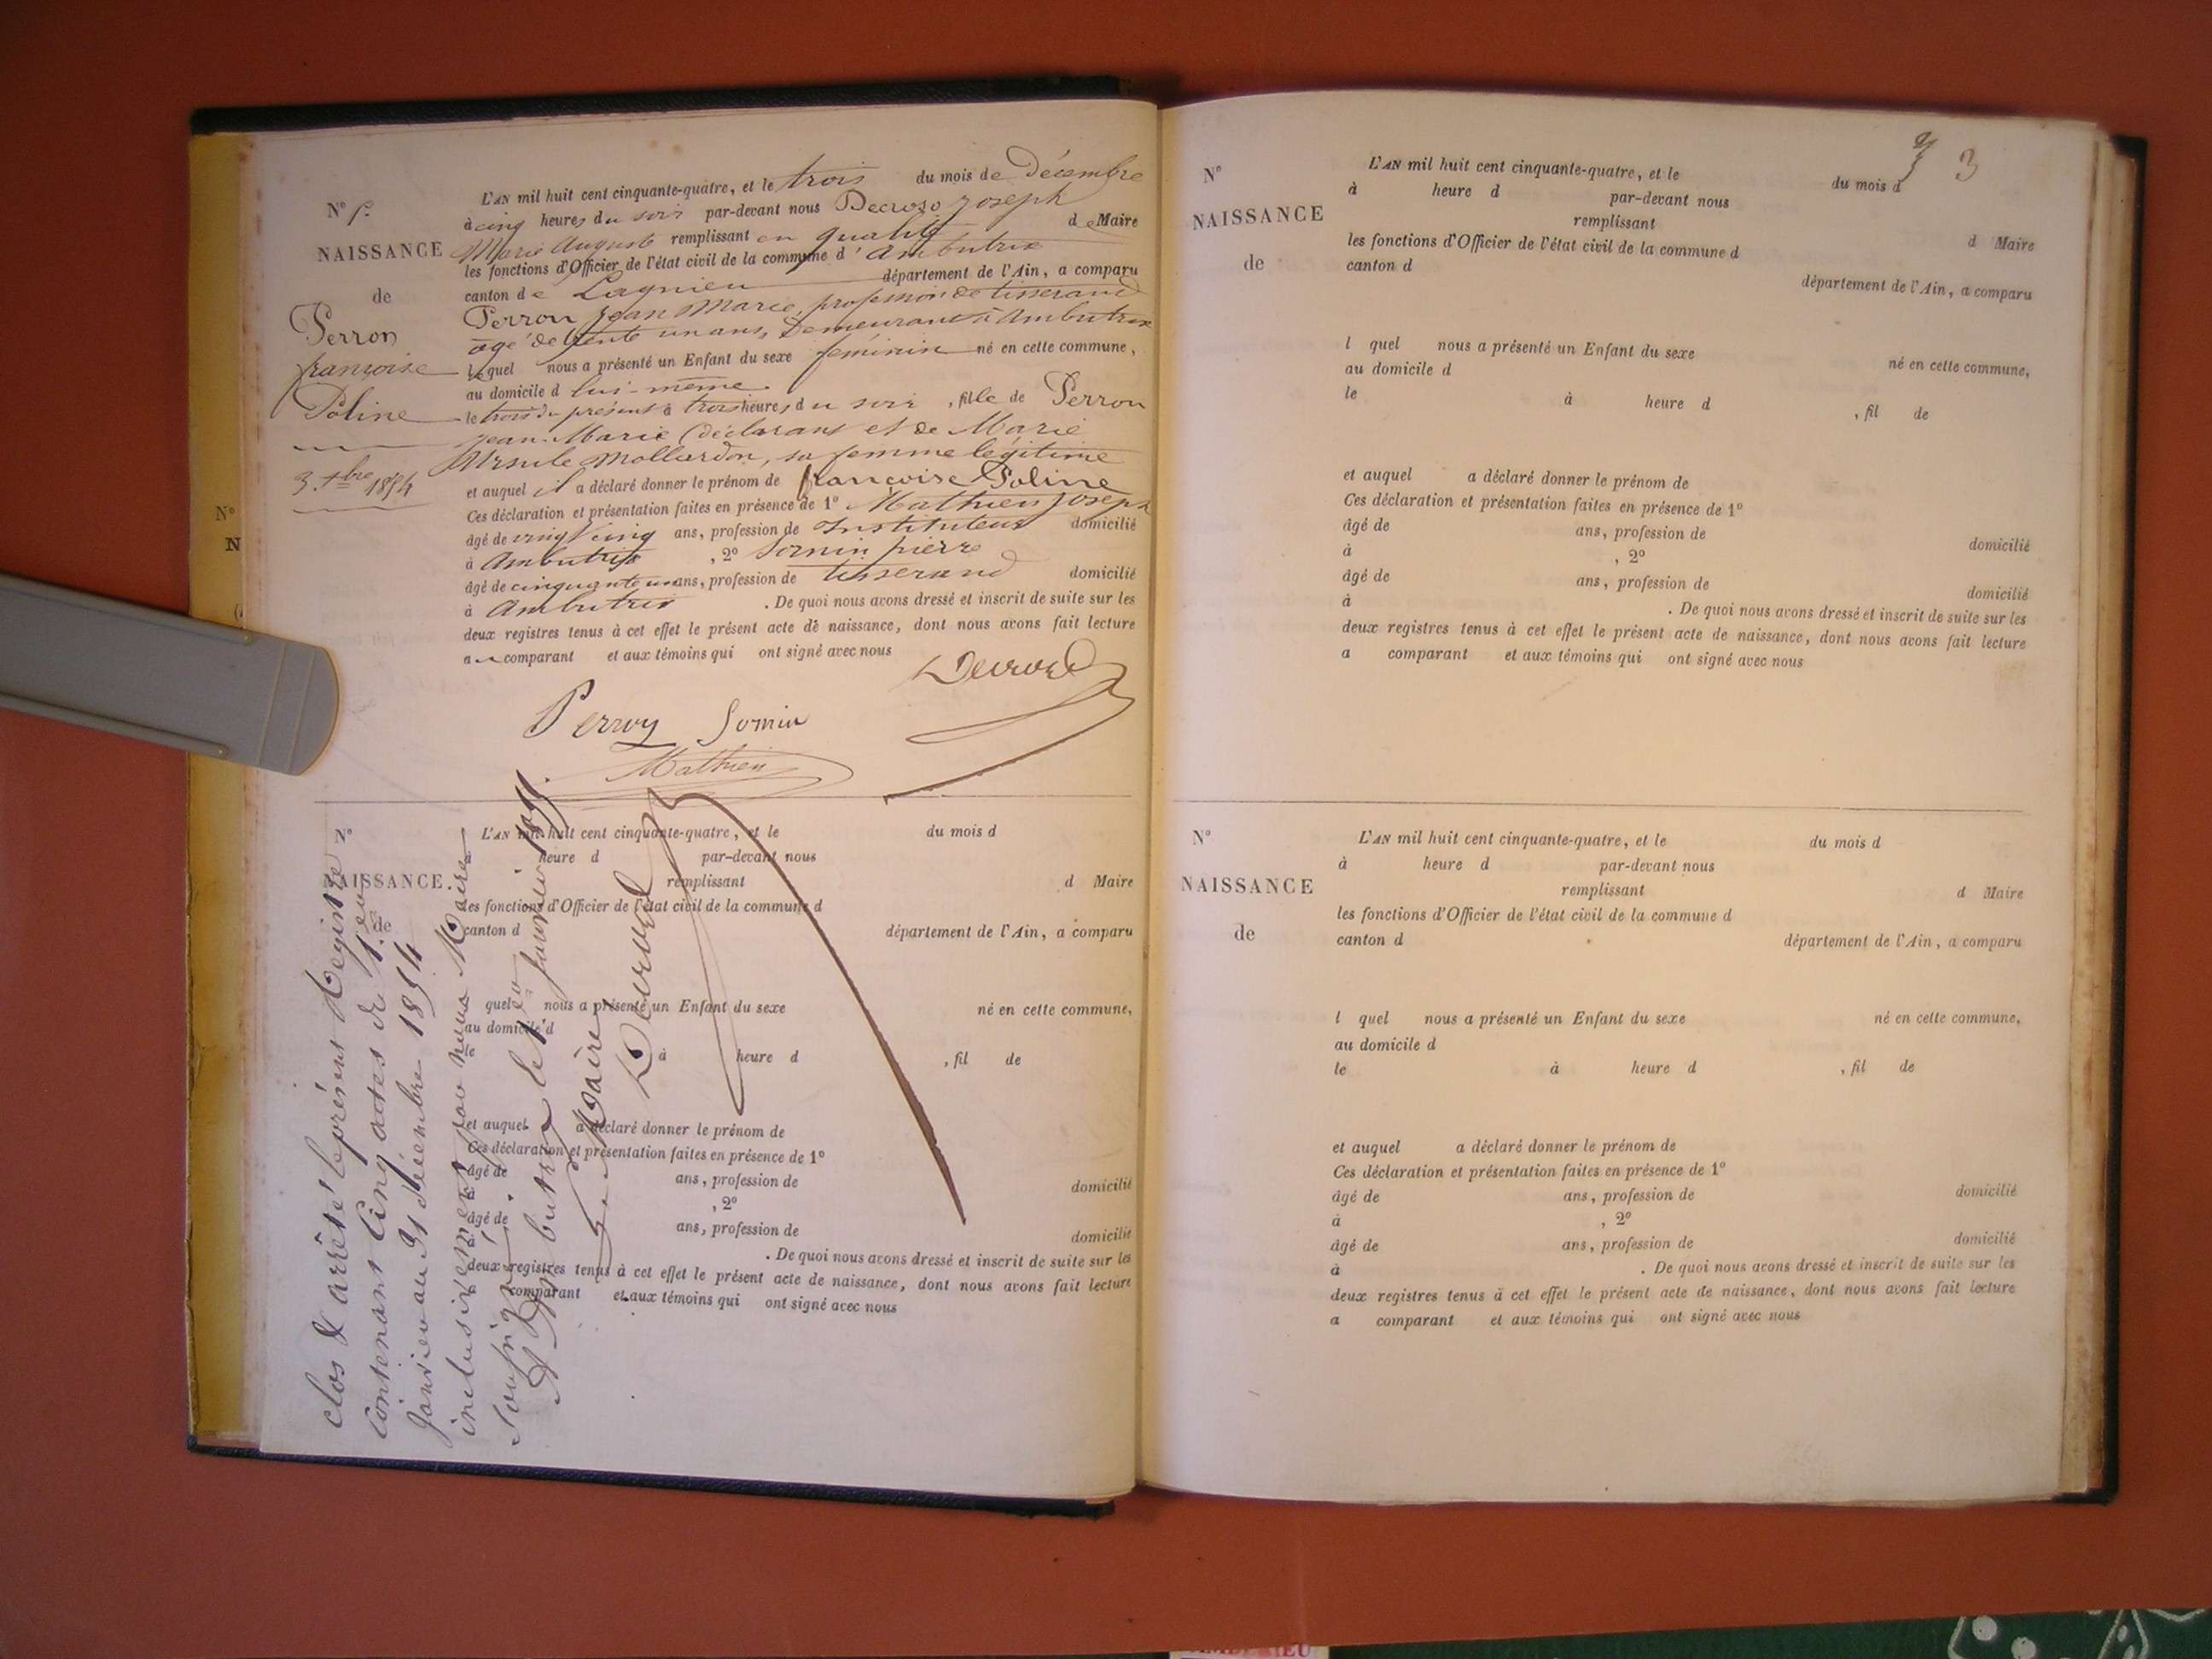 L'AN mil huit cent cinquante-quatre, et le trois du mois de Décembre
à cinq heures du soir par-devant nous Decroso Joseph
Marie Auguste remplissant en qualité de Maire
les fonctions d'Officier de l'état civil de la commune d'Ambutrix
canton de Lagnieu département de l'Ain, a comparu
Perron Jean Marie, profession de tisserand
âgé de trente un ans, demeurant à Ambutrix
lequel nous a présenté un Enfant du sexe féminin né en cette commune,
au domicile d lui-même.
le trois du présent à trois heures du soir, fille de Perron
Jean-Marie déclarant et de Marie
Ursule Mollardon, sa femme légitime
et auquel il a déclaré donner le prénom de françoise Poline
Ces déclaration et présentation faites en présence de 1° Mathieu Joseph
âgé de vingt cinq ans, profession de Instituteur domicilié
à Ambutrix, 2° Somin pierre
âgé de cinquante un ans, profession de tisserand domicilié
à Ambutrix. De quoi nous avons dressé et inscrit de suite sur les
deux registres tenus à cet effet le présent acte de naissance, dont nous avons fait lecture
au comparant et aux témoins qui ont signé avec nous
N° 5.
NAISSANCE
de
Perron
françoise
Poline
3 Xbre 1854
Perron Somin
Mathieu
N°
NAISSANCE.
de
L'AN mil huit cent cinquante-quatre, et le du mois d
heure d par-devant nous
remplissant d Maire
les fonctions d'Officier de l'état civil de la commune d
canton d département de l'Ain, a comparu
quel nous a présenté un Enfant du sexe né en cette commune,
au domicile d
le à heure d , fil de
et auquel a déclaré donner le prénom de
Ces déclaration et présentation faites en présence de 1°
âgé de ans, profession de domicilié
à , 2°
âgé de ans, profession de domicilié
. De quoi nous avons dressé et inscrit de suite sur les
deux registres tenus à cet effet le présent acte de naissance, dont nous avons fait lecture
comparant et aux témoins qui ont signé avec nous
clos & arrêté le présent Registre
contenant Cinq actes du 1er
Janvier au 31 décembre 1854
inclusivement par nous Maire
soussigné.
Ambutrix le 1er Janvier 1855.
Le Maire
3
N°
NAISSANCE
de
L'AN mil huit cent cinquante-quatre, et le du mois d
à heure d par-devant nous
remplissant d Maire
les fonctions d'Officier de l'état civil de la commune d
canton d département de l'Ain, a comparu
l quel nous a présenté un Enfant du sexe né en cette commune,
au domicile d
le à heure d , fil de
et auquel a déclaré donner le prénom de
Ces déclaration et présentation faites en présence de 1°
âgé de ans, profession de domicilié
à , 2°
âgé de ans, profession de domicilié
à . De quoi nous avons dressé et inscrit de suite sur les
deux registres tenus à cet effet le présent acte de naissance, dont nous avons fait lecture
a comparant et aux témoins qui ont signé avec nous
N°
NAISSANCE
de
L'AN mil huit cent cinquante-quatre, et le du mois d
à heure d par-devant nous
remplissant d Maire
les fonctions d'Officier de l'état civil de la commune d
canton d département de l'Ain, a comparu
l quel nous a présenté un Enfant du sexe né en cette commune,
au domicile d
le à heure d , fil de
et auquel a déclaré donner le prénom de
Ces déclaration et présentation faites en présence de 1°
âgé de ans, profession de domicilié
à , 2°
âgé de ans, profession de domicilié
à . De quoi nous avons dressé et inscrit de suite sur les
deux registres tenus à cet effet le présent acte de naissance, dont nous avons fait lecture
a comparant et aux témoins qui ont signé avec nous